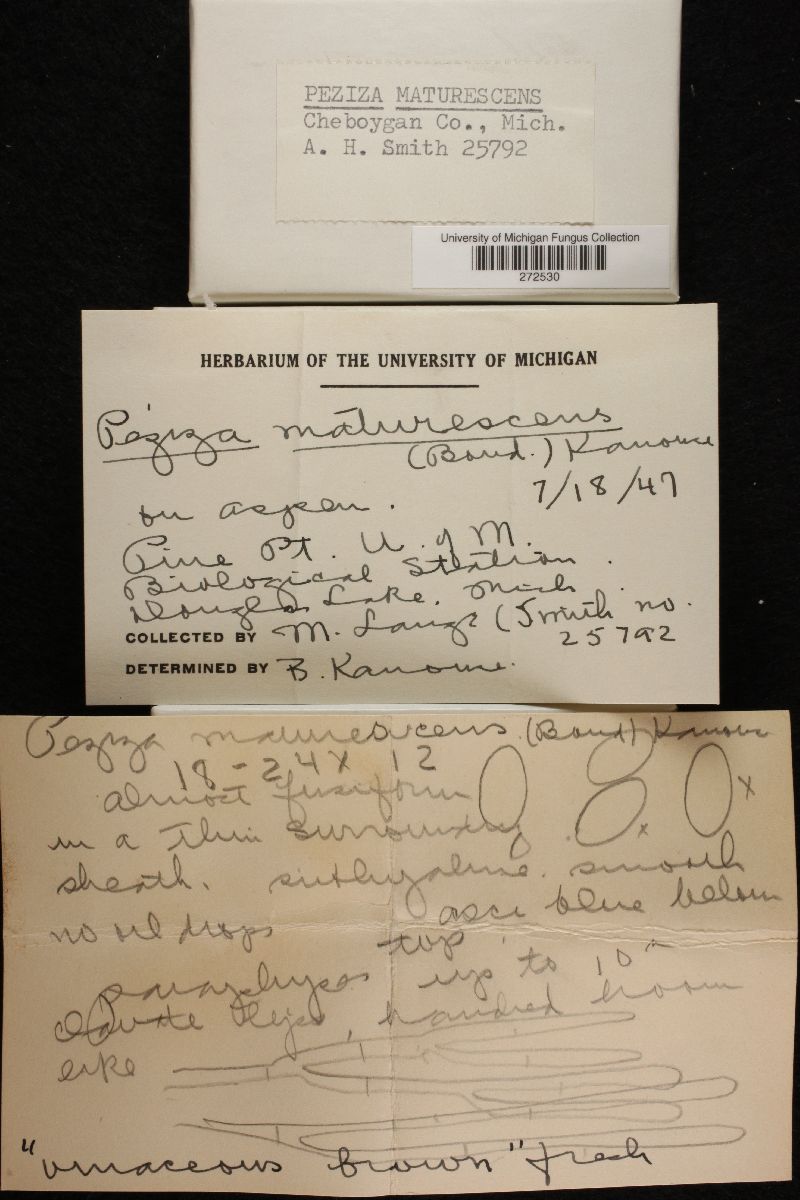 PEZIZA MATURESCENS
Cheboygan Co., Mich.
A. H. Smith 25792
University of Michigan Fungus Collection
272530
HERBARIUM OF THE UNIVERSITY OF MICHIGAN
Peziza maturescens
(Boud.) Kanouse
7/18/47
on aspen.
Pine Pt. U. of M.
Biological Station.
Douglas Lake, Mich.
COLLECTED BY M. Lange (Smith no.
25792
DETERMINED BY B. Kanouse.
Peziza maturescens (Boud) Kanouse
18-24 x 12
almost fusiform
in a thin surrounding
sheath. subhyaline. smooth
no oil drops asci blue below
top
paraphyses up to 10
clavate
like
"vinaceous brown" fresh